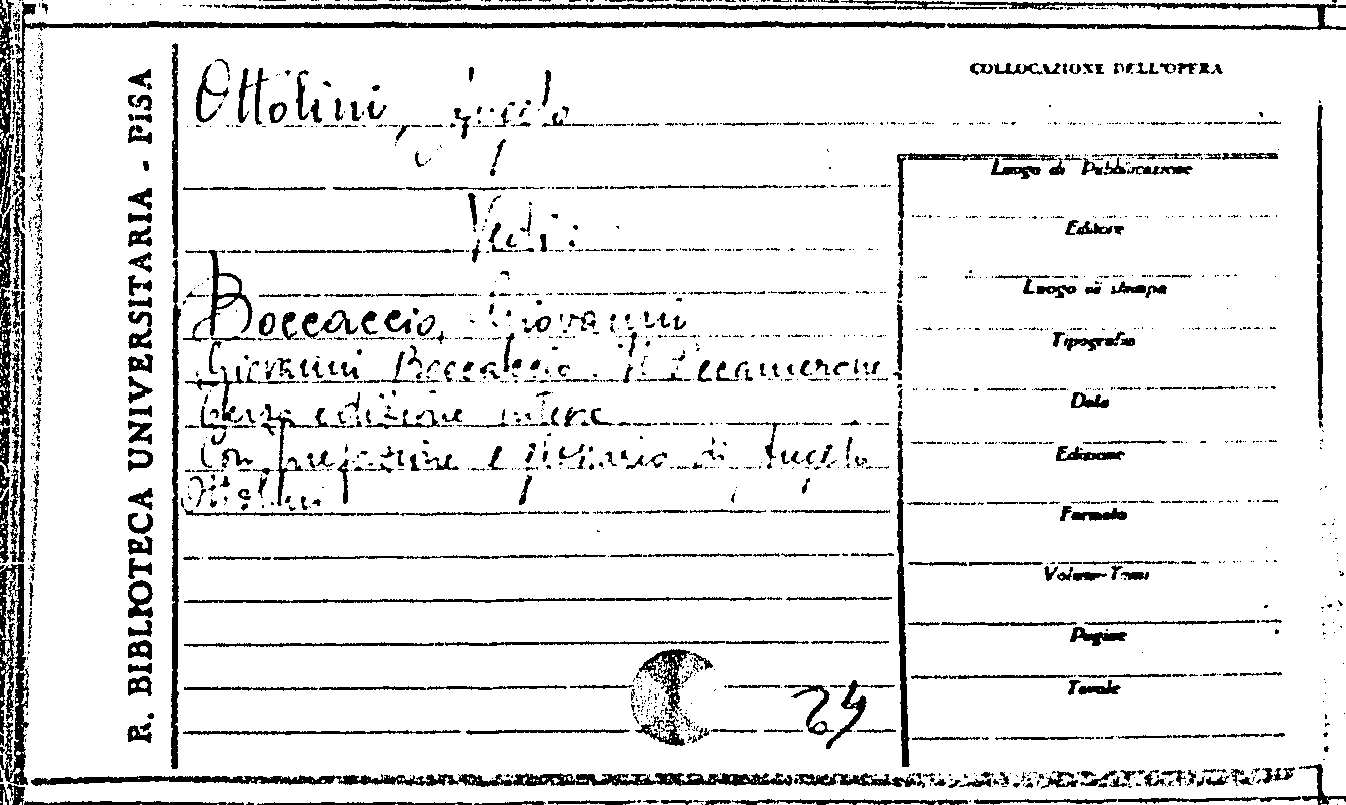 R. BIBLIOTECA UNIVERSITARIA - PISA
Ottolini, Angelo
Vedi:
Boccaccio, Giovanni
Giovanni Boccaccio. Il Decamerone.
Terza edizione intera
Con prefazione e glossario di Angelo
Ottolini
24
COLLOCAZIONE DELL'OPERA
Luogo di Pubblicazione
Editore
Luogo di stampa
Tipografia
Data
Edizione
Formato
Volume-Tomi
Pagine
Tavole